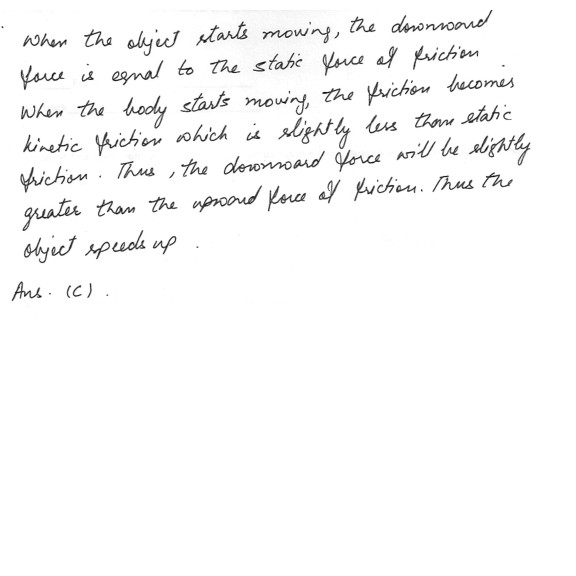 When the object starts moving, the downward
force is equal to the static force of friction.
When the body starts moving, the friction becomes
kinetic friction which is slightly less than static
friction. Thus, the downward force will be slightly
greater than the upward force of friction. Thus the
object speeds up.
Ans. (C).